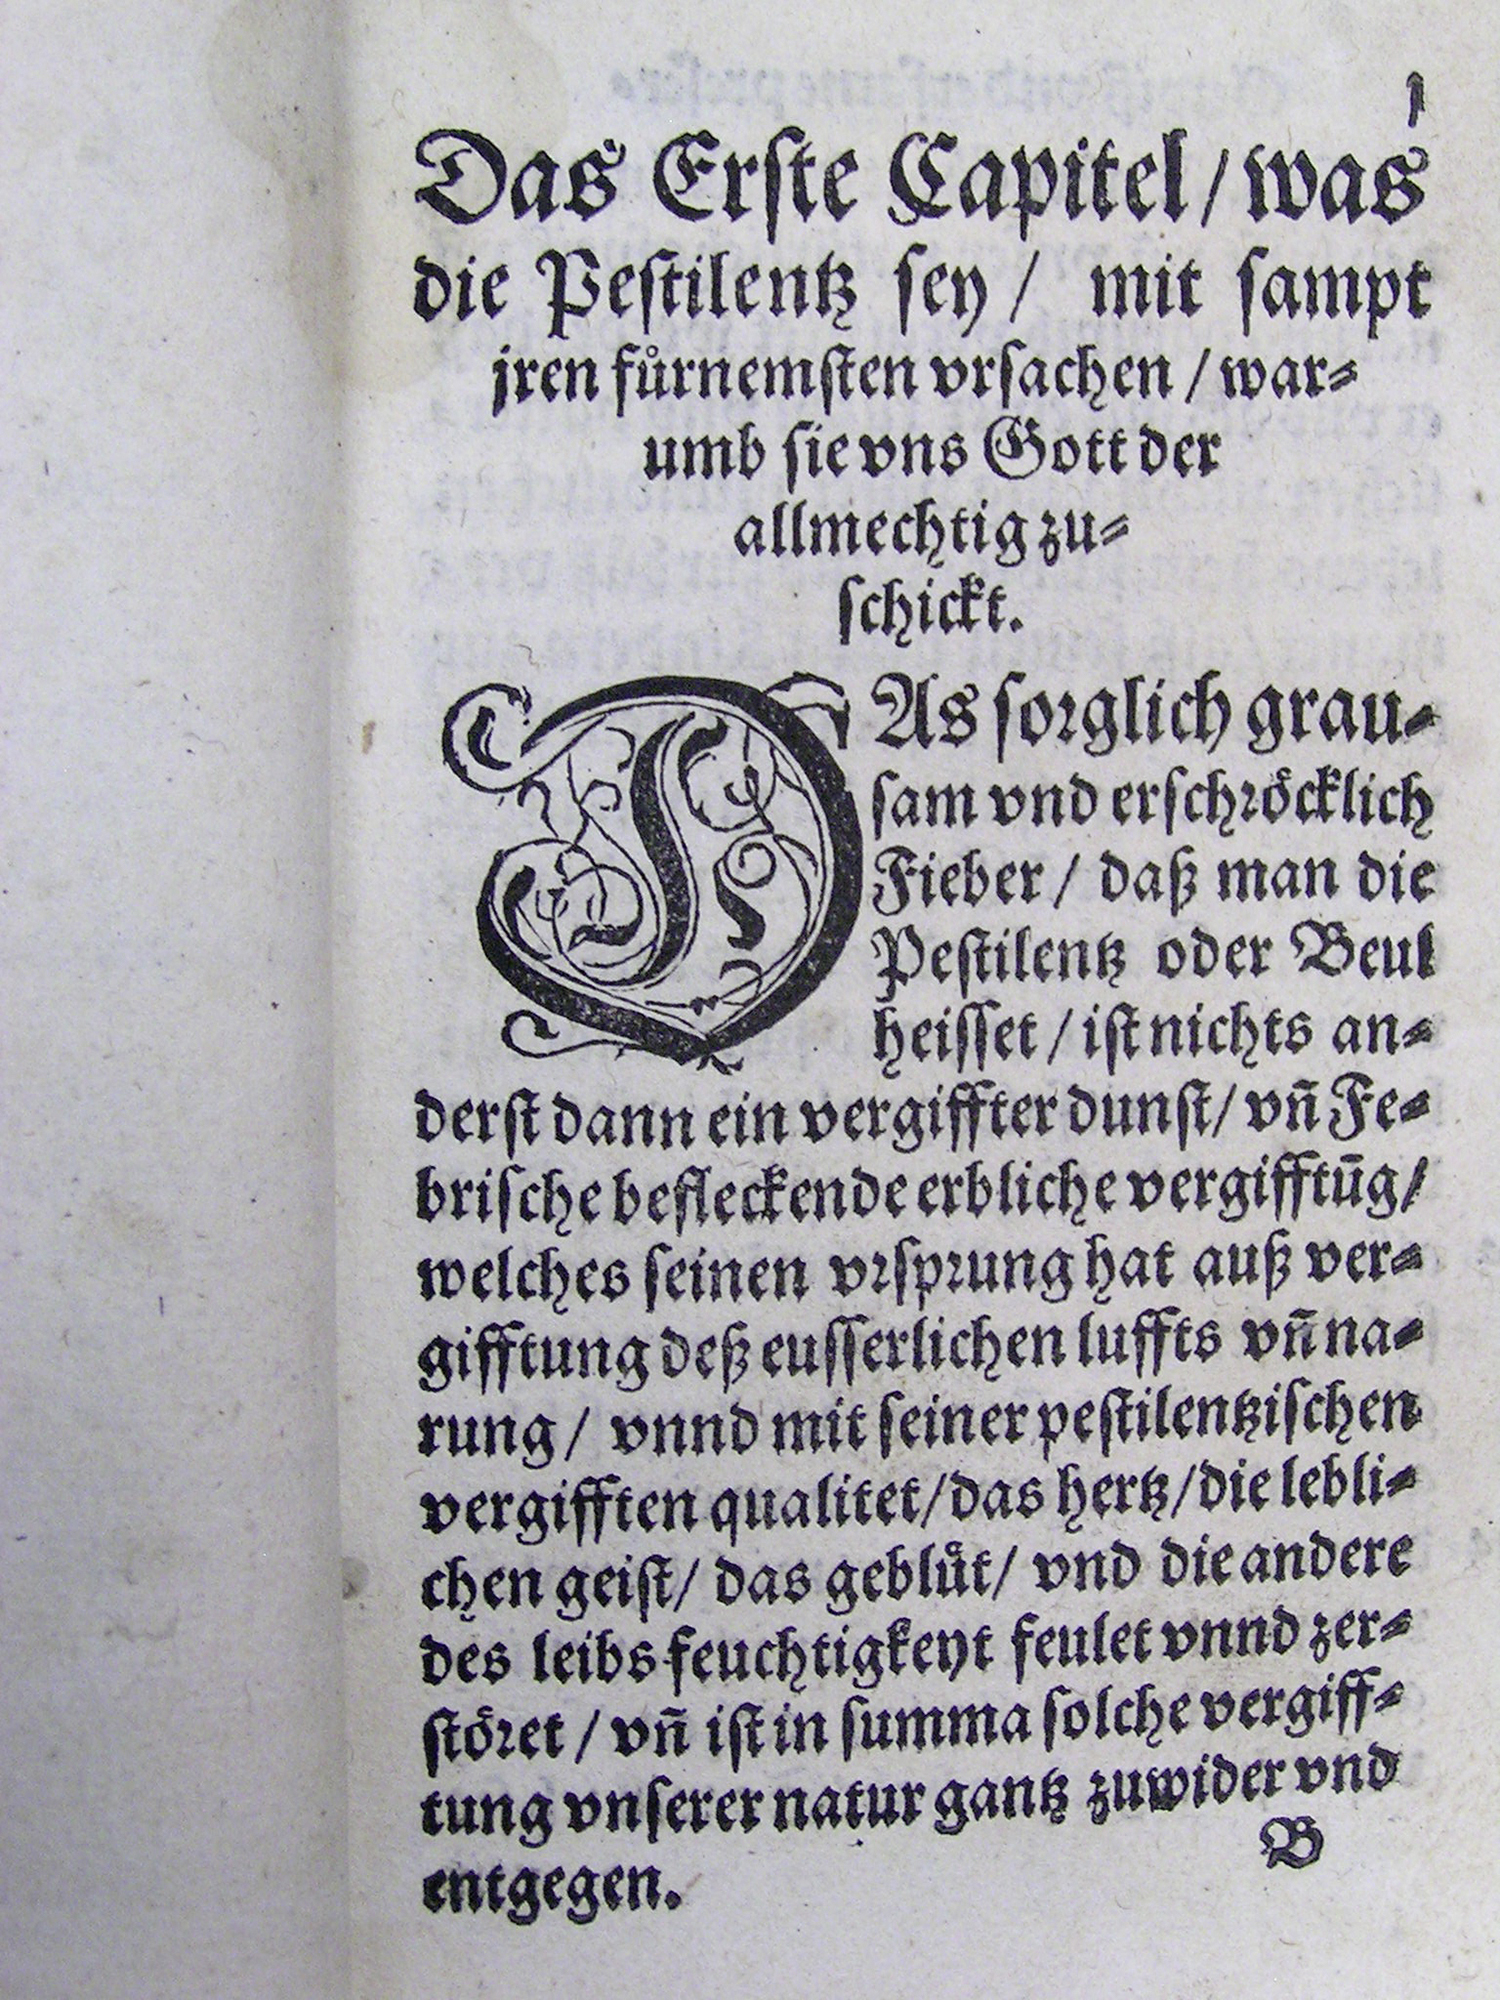 1
Das Erste Capitel / was
die Pestilentz sey / mit sampt
jren fůrnemsten vrsachen / war⸗
umb sie vns Gott der
allmechtig zu⸗
schickt.
DAs sorglich grau⸗
sam vnd erschröcklich
Fieber / daß man die
Pestilentz oder Beul
heisset / ist nichts an⸗
derst dann ein vergiffter dunst / vñ Fe⸗
brische befleckende erbliche vergifftũg /
welches seinen vrsprung hat auß ver⸗
gifftung deß eusserlichen luffts vñ na⸗
rung / vnnd mit seiner pestilentzischen
vergifften qualitet / das hertz / die lebli⸗
chen geist / das geblůt / vnd die andere
des leibs feuchtigkeyt feulet vnnd zer⸗
störet / vñ ist in summa solche vergiff⸗
tung vnserer natur gantz zuwider vnd
entgegen.
B